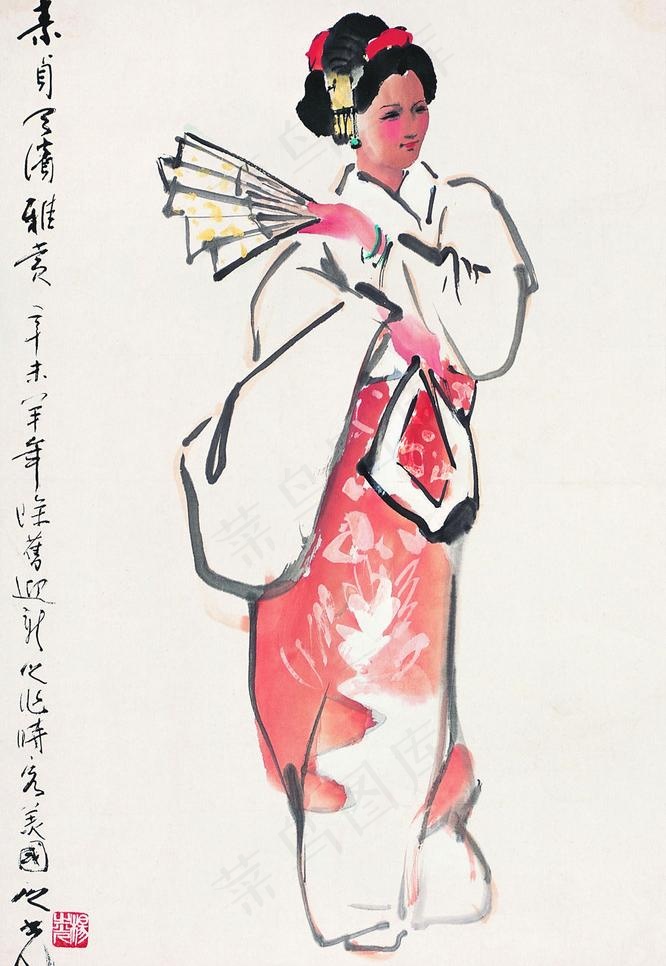 素貞天濤雅賞 辛未羊年除舊迎新之際時客美國 之光
菜鸟图库